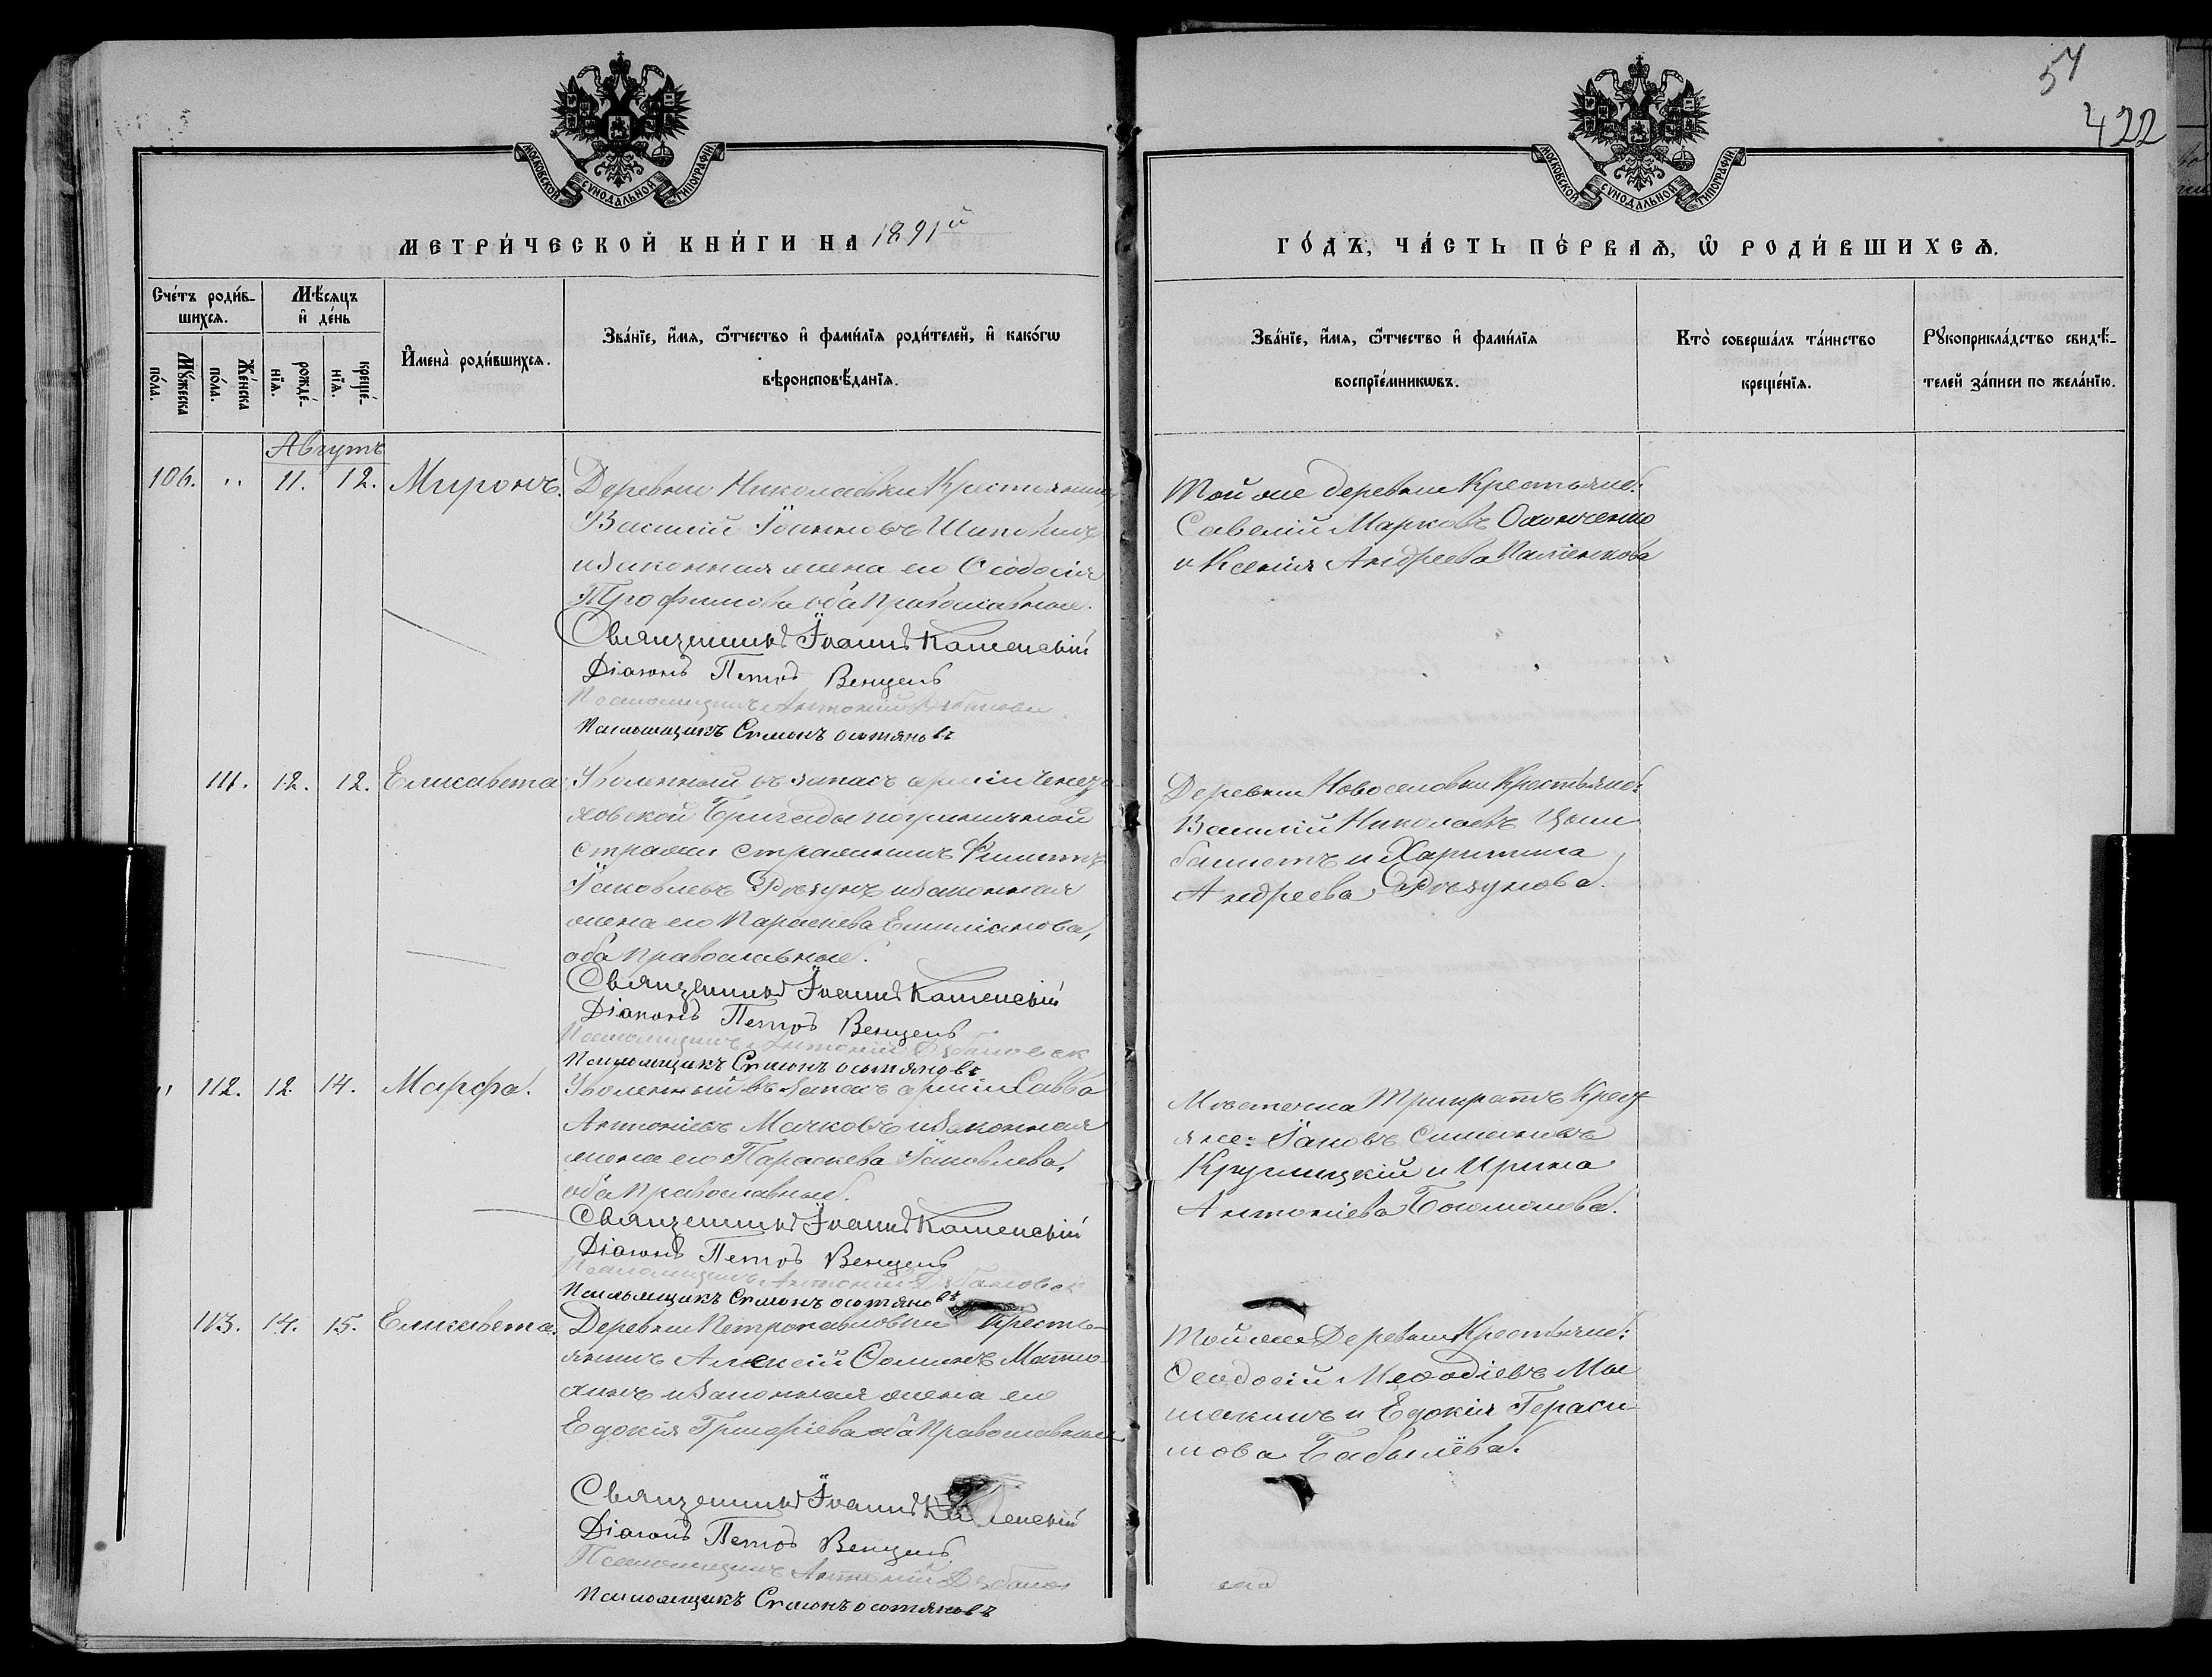 54
422
МОСКОВСКОЙ СѴНОДАЛЬНОЙ ТИПОГРАФІИ
МОСКОВСКОЙ СѴНОДАЛЬНОЙ ТИПОГРАФІИ
МЕТРИ́ЧЕСКОЙ КНИ́ГИ НА 1891й
ГО́ДЪ, ЧА́СТЬ ПЕ́РВАЯ, Ѡ РОДИ́ВШИХСЯ.
Сче́тъ роди́в-
шихся.
Мꙋжеска по́ла.
Же́нска по́ла.
Мѣ́сяцъ
и҆ де́нь
рожде́-
нїя.
креще́-
нїя.
И҆мена̀ роди́вшихся.
Зва́нїе, и҆́мя, ѻ҆́тчество и҆ фами́лїя роди́телей, и҆ како́гѡ
вѣроисповѣ́данїя.
Зва́нїе, и҆́мя, ѻ҆́тчество и҆ фами́лїя
воспрїе́мникѡвъ.
Кто̀ соверша́лъ та́инство
креще́нїя.
Рꙋкоприкла́дство свидѣ́-
телей за́писи по жела́нїю.
Августъ
106. " 11. 12. Миронъ. Деревни Николаевки Крестьянинъ
Василій Іоанновъ
и законная жена его Ѳеодосія
Трофимова оба Православные.
Священникъ Іоаннъ Каменскій
Діаконъ Петръ Венцель
Псаломщикъ Антоній
Псаломщикъ Симонъ Осотяновъ
Той же деревни Крестьяне:
Савелій Марковъ
и Ксенія Андреева
111. 12. 12. Елисавета Уволенный въ запасъ арміи
Бригады пограничной
стражи стражникъ Филиппъ
Іаковлевъ Рѣзунъ и законная
жена его Параскева Емиліанова,
оба Православные.
Священникъ Іоаннъ Каменскій
Діаконъ Петръ Венцель
Псаломщикъ Антоній
Псаломщикъ Симонъ Осотяновъ
Деревни Новоселовки Крестьяне:
Василій Николаевъ Цым
балистъ и Харитина
Андреева Рѣзунова.
" 112. 12. 14. Марфа. Уволенный въ запасъ арміи Савва
Антоніевъ Мачковъ и законная
жена его Параскева Іаковлева,
оба Православные.
Священникъ Іоаннъ Каменскій
Діаконъ Петръ Венцель
Псаломщикъ Антоній
Псаломщикъ Симонъ Осотяновъ
Мѣстечка Трикратъ Крест
яне: Іаковъ Симеоновъ
Круглицкій и Ирина
Антоніева
113. 14. 15. Елисавета. Деревни Петропавловки Кресть-
янинъ Алексій Ѳоминъ Матю-
хинъ и законная жена его
Евдокія Григоріева оба Православные
Священникъ Іоаннъ Каменскій
Діаконъ Петръ Венцель
Псаломщикъ Антоній
Псаломщикъ Симонъ Осотяновъ
Той же Деревни Крестьяне:
Ѳеодосій Меѳодіевъ Мы
шакинъ и Евдокія Гераси-
мова Бабылёва.